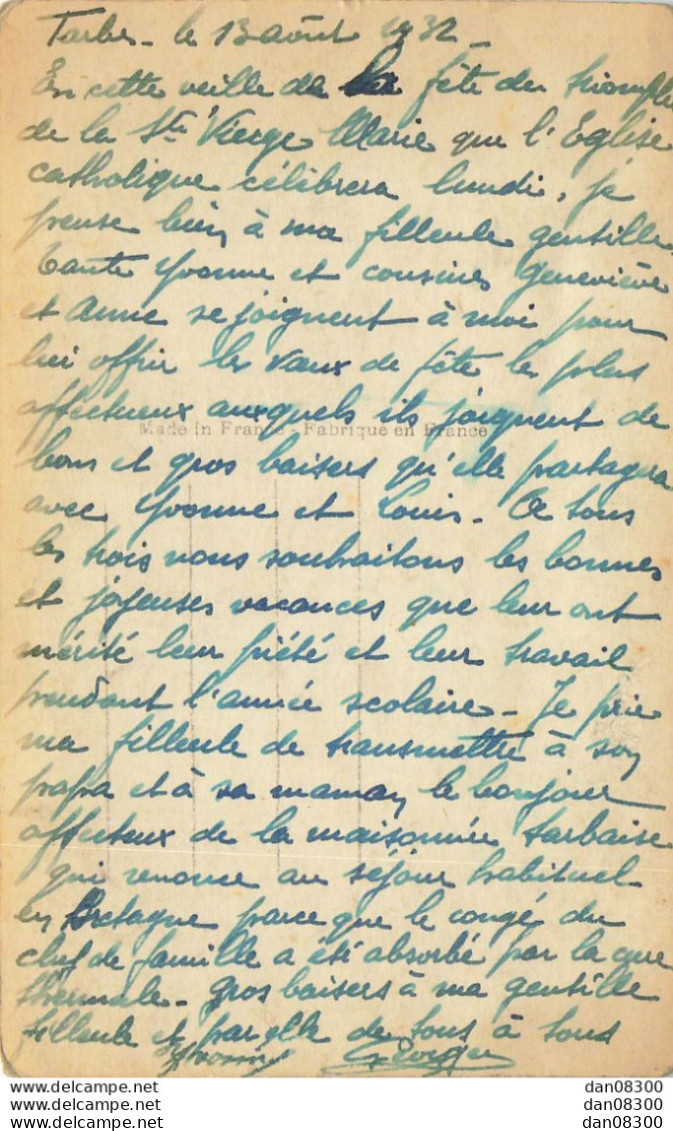 Tarbes - le 13 août 1932 -
En cette veille de la fête du triomphe
de la Ste Vierge Marie que l'Eglise
catholique célèbrera lundi, je
pense bien à ma filleule gentille.
tante Yvonne et cousines Geneviève
et Anne se joignent à moi pour
lui offrir les vœux de fête les plus
affectueux auxquels ils joignent de
Made in France - Fabriqué en France
bons et gros baisers qu'elle partagera
avec Yvonne et Louis - A tous
les trois nous souhaitons les bonnes
et joyeuses vacances que leur ont
mérité leur piété et leur travail
pendant l'année scolaire - Je prie
ma filleule de transmettre à son
papa et à sa maman le bonjour
affectueux de la maisonnée tarbaise
qui renonce au séjour habituel
en Bretagne parce que le congé du
chef de famille a été absorbé par la cure
thermale - gros baisers à ma gentille
filleule et par elle de tous à tous
dan08300
dan08300
dan08300